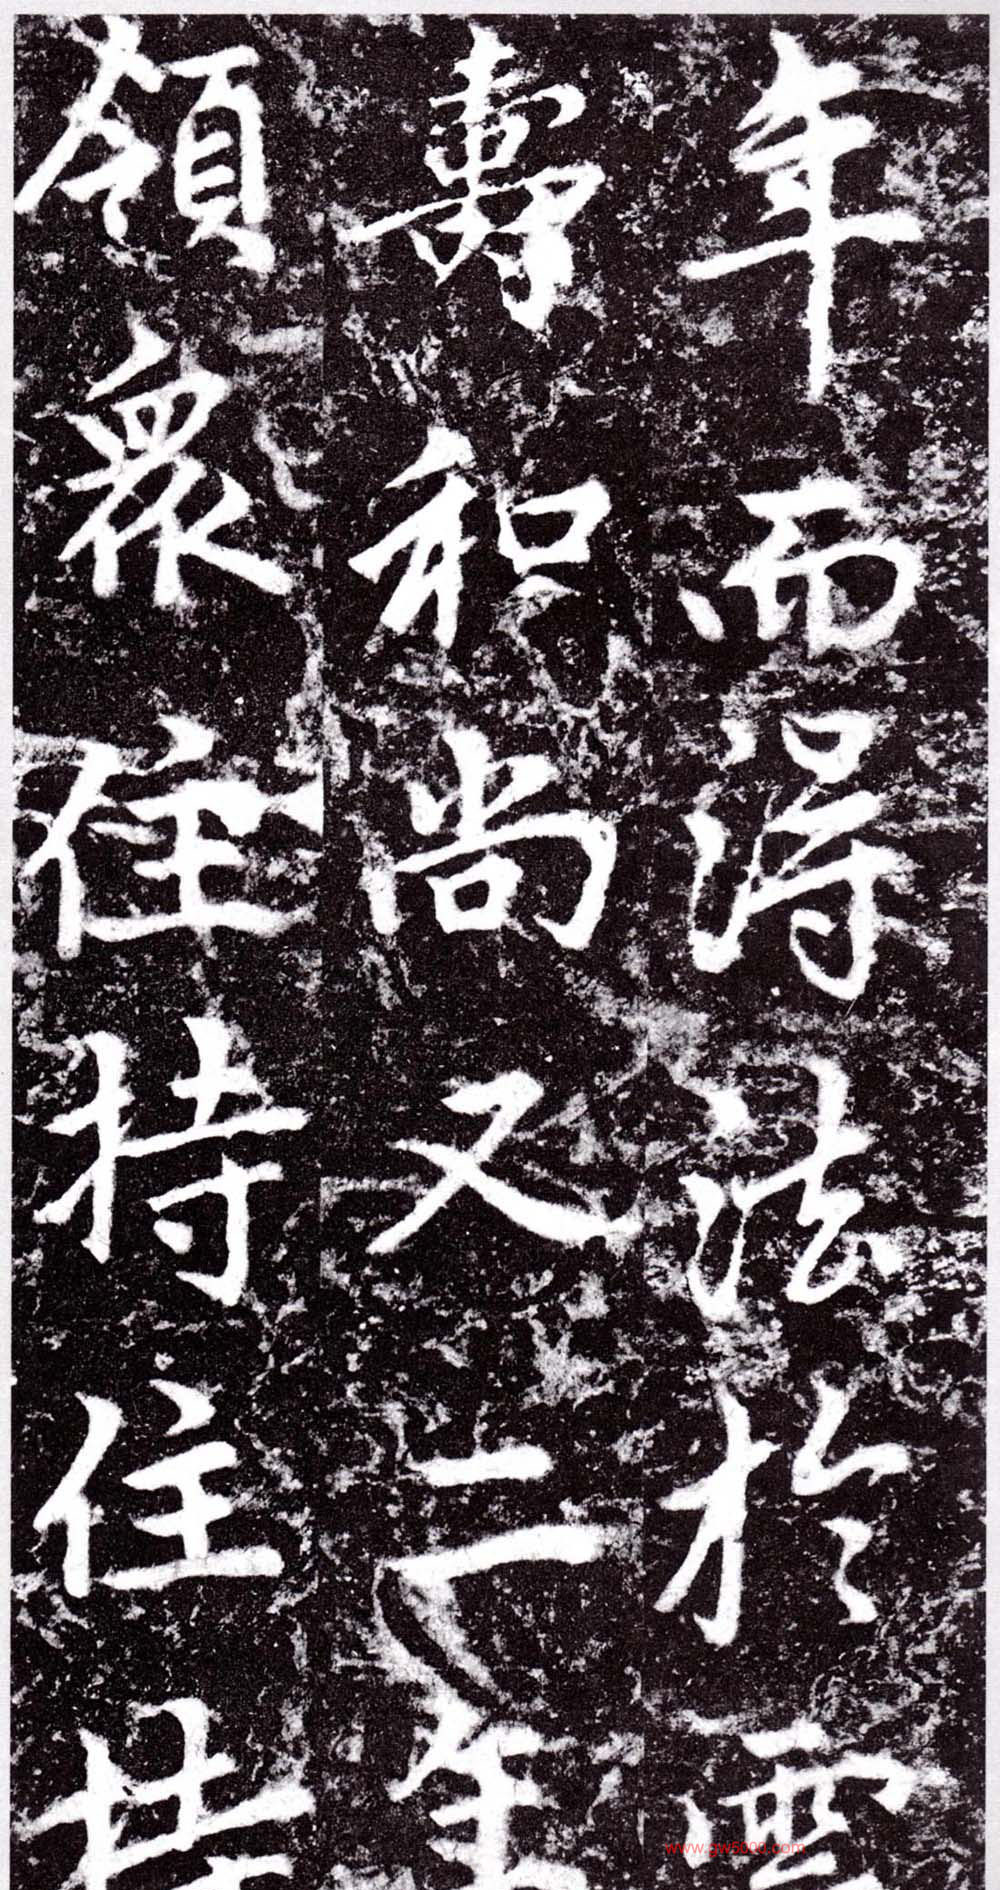 年而得法於雲
壽和尚又二年
領衆住持住廿
www.gw5000.com